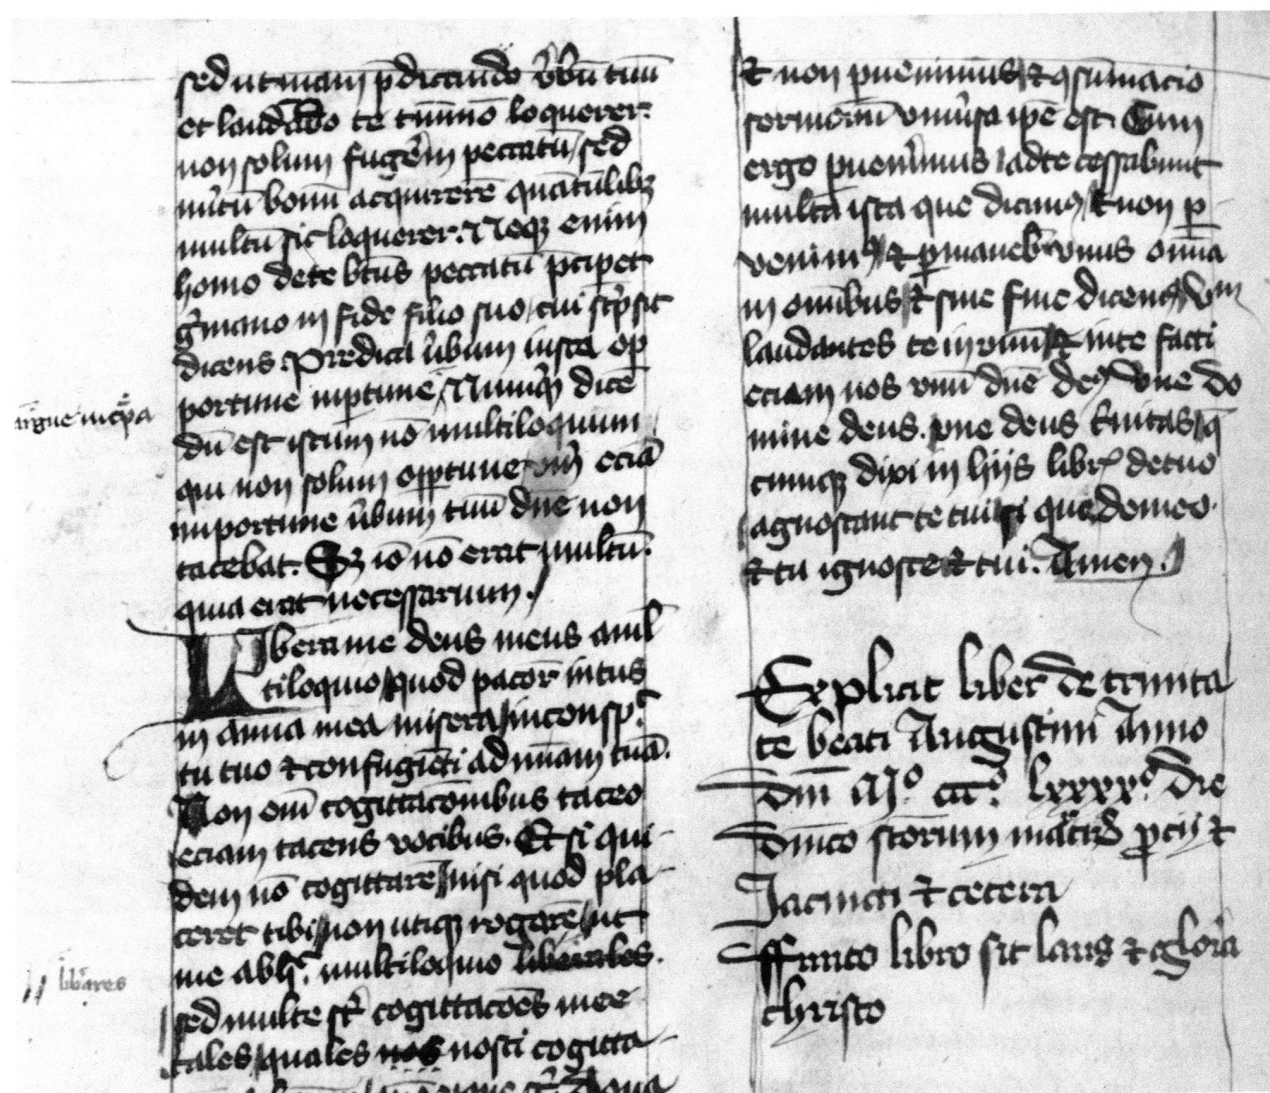 sed utinam p̄dicando v̄bū tuū
et laudādo te tm̄mō loquerer.
non solum fugerem peccatū / sed
m̄itū bonū acquirerē quātūlibꝫ
multū sic loquerer. Neqꝫ enim
homo de te bt̄us peccatū p̄ciperet
g̃mano in fide filio suo / cui sc̄psit
dicens Predica v̄bum insta op
portune inportune Nūmq̄d dicē
dū est istum nō multiloquium
qui non solum opportune veꝝ eciā
inportune v̄bum tuū dn̄e non
tacebat. Sꝫ iō nō erat multū.
quia erat necessarium.
Libera me deus meus a mul
tiloquio / quod pacior intus
in anima mea misera / in consp̄c
tu tuo ⁊ confugiēti ad mīam tuā.
Non em̄ cogittacōnibus taceo
eciam tacens vocibus. Et si qui-
dem nō cogittarē / nisi quod pla-
ceret tibi / non utiqꝫ rogarē / ut
me abhꝰ. multiloquio liberares.
sed multe st̄ cogittacōes mee
tales / quales nos nosti cogitta-
argue increpa
liberares
Et non puenimus / ⁊ ꝯsūmacio
sermonū vniūsa ip̄e est. Cum
ergo puenerimus / ad te cessabunt
multa ista que dicimꝰ / ⁊ non p̄-
venimꝰ / ⁊ p̄manebis vnus om̄ia
in om̄ibus / ⁊ sine fine dicemꝰ / vnū
laudantes te in vnū / ⁊ in te facti
eciam nos vnū dn̄e deꝰ vne do
mine deus. vne deus t̄nitas / q̄
cumqꝫ dixi in hijs libris de tuo
agnoscant te tui / si qua de meo.
⁊ tu ignosce ⁊ tui. Amen.
Explicit liber de trinita
te beati Augustini Anno
dn̄i Mᵒ. cccᵒ. lxxxxᵒ. die
dn̄ico sc̄torum mar̄trū p̄cij ⁊
Jacincti ⁊ cetera
ffinito libro sit laus ⁊ gloria
christo